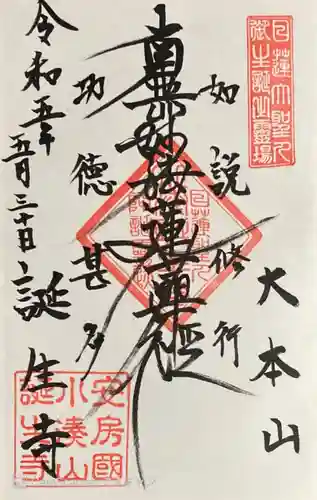 日蓮大聖人
御生誕之霊場
大本山
如説修行
南無妙法蓮華経
功徳甚多
令和五年
五月三十日
誕生寺
安房國
小湊山
誕生寺